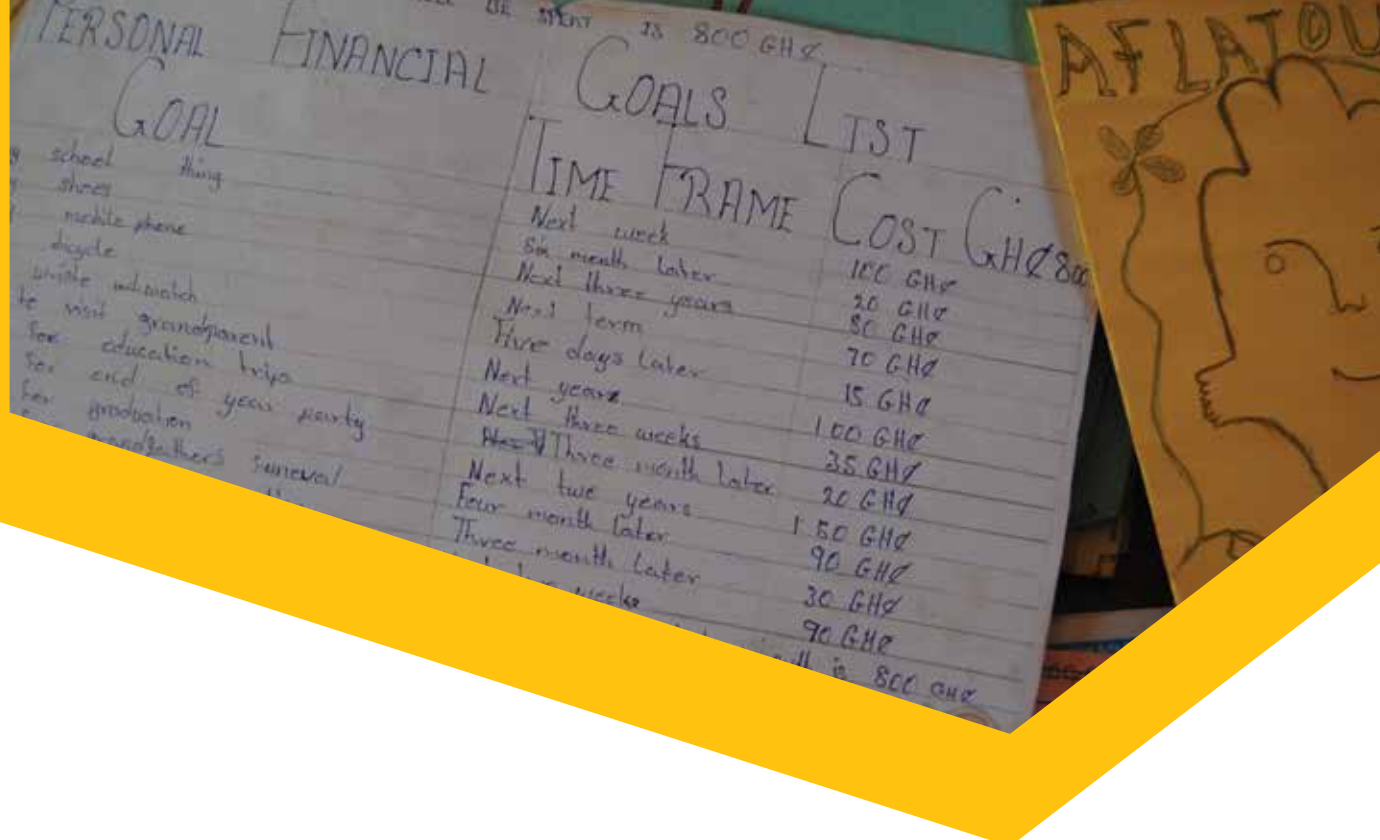 BE SPENT IS 800 GH¢
PERSONAL FINANCIAL GOALS LIST
GOAL TIME FRAME COST GH¢ 800
school thing Next week 100 GH¢
shoes Six month Later 20 GH¢
mobile phone Next three years 80 GH¢
Next term 70 GH¢
Five days Later 15 GH¢
visit grandparent Next years 100 GH¢
for education trips Next three weeks 35 GH¢
for end of year party Three month Later 20 GH¢
for graduation Next two years 150 GH¢
grandfathers funeral Four month Later 90 GH¢
Three month Later 30 GH¢
weeks 90 GH¢
is 800 GH¢
AFLATOU